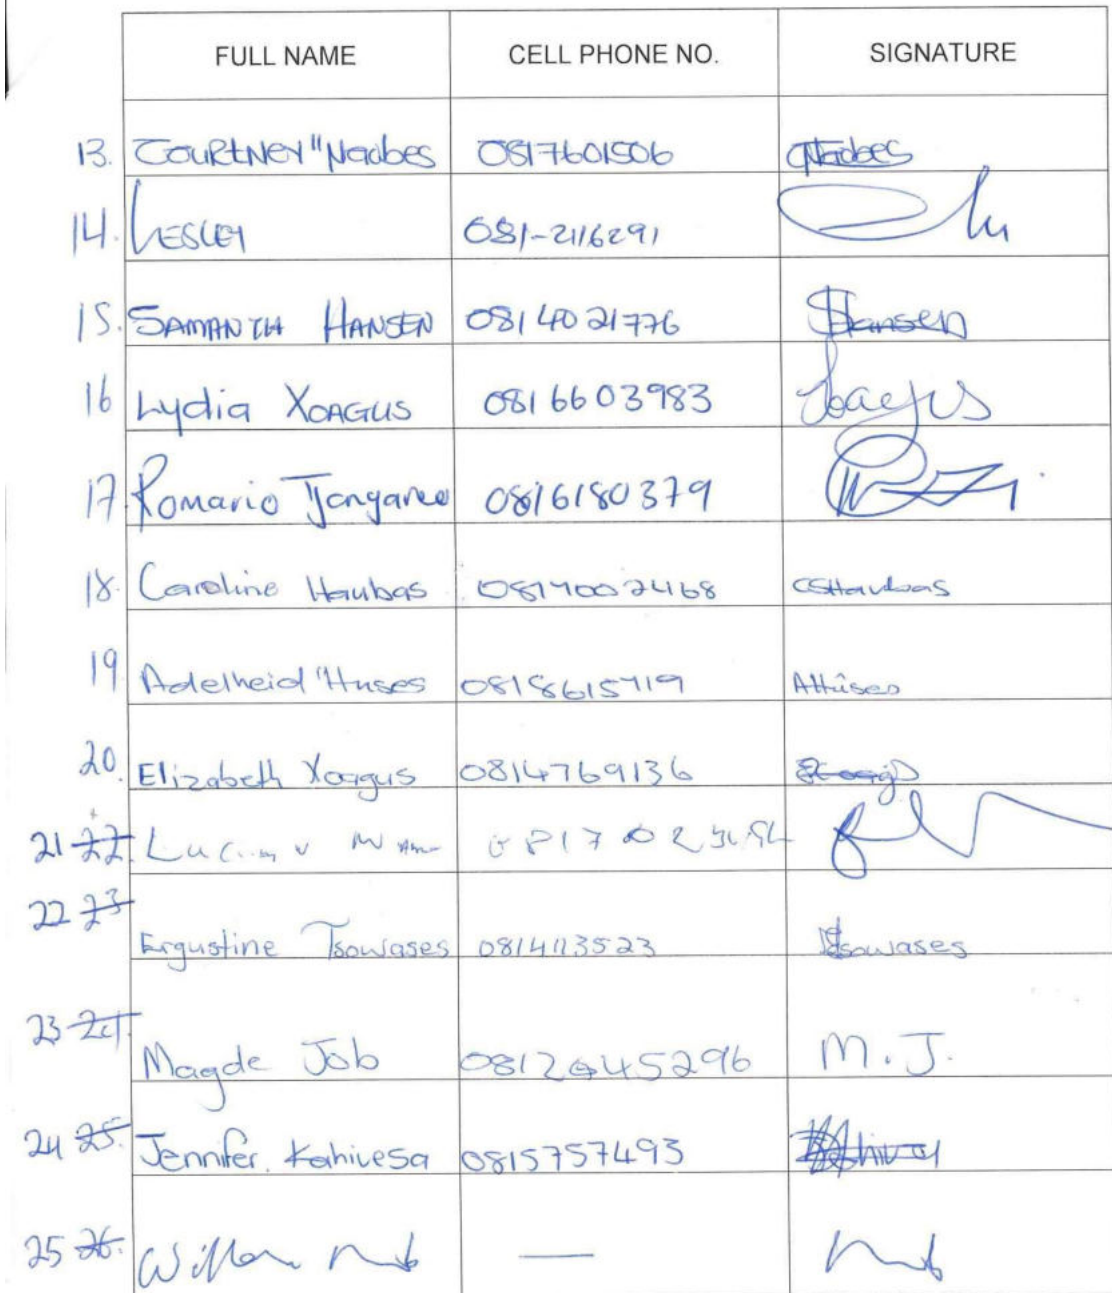 FULL NAME CELL PHONE NO. SIGNATURE
13. COURTNEY "Naobes 0817601506 Naobes
14. LESLEY 081-2116291
15. SAMANTHA HANSEN 0814021776 SHansen
16 Lydia XOAGUS 0816603983
17 Romario 0816180379
18. Caroline Haubas 0814002468 CSHaubas
19 Adelheid "Huses 0818615419 AHuses
20. Elizabeth Xoagus 0814769136
21 22.
22 23 Ergustine Tsowases 0814113523 Tsowases
23 24. Magde Job 0812445296 M.J.
24 25. Jennifer. Kahivesa 0815757493
25 26. —